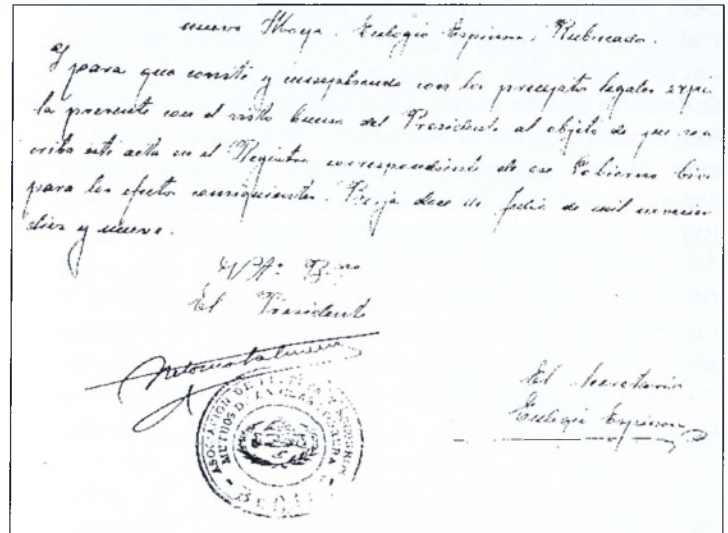 nueve Moya. Eulogio Espinosa. Rubricado.
Y para que conste y cumpliendo con los preceptos legales expi
la presente con el visto bueno del Presidente al objeto de que
criba esta acta en el Registro correspondiente de ese Gobierno Civi
para los efectos consiguientes. Berja doce de de mil novecien
diez y nueve.
Vº Bno
El Presidente
El Secretario
Eulogio Espinosa
ASOCIACION DE Y SOCORROS
MUTUOS D LA CLASE OBRERA
BERJA